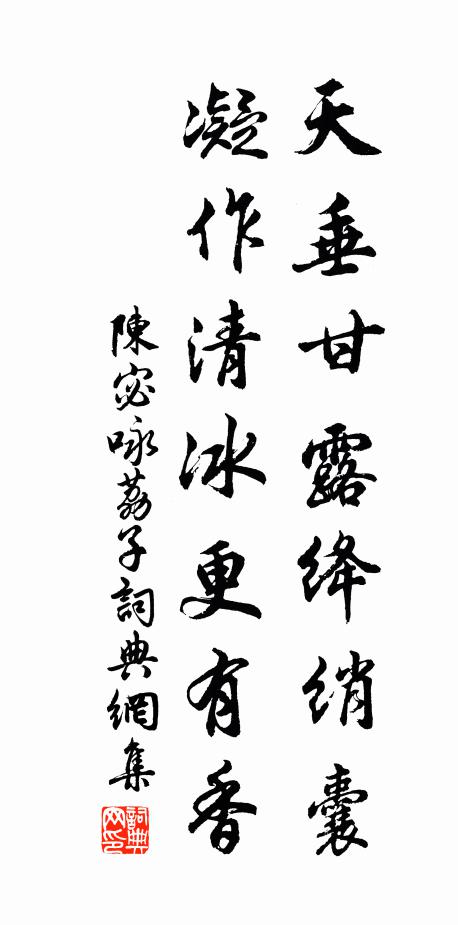 天垂甘露绛绡囊
凝作清冰更有香
陳宓咏荔子詞典網集
詞典网印